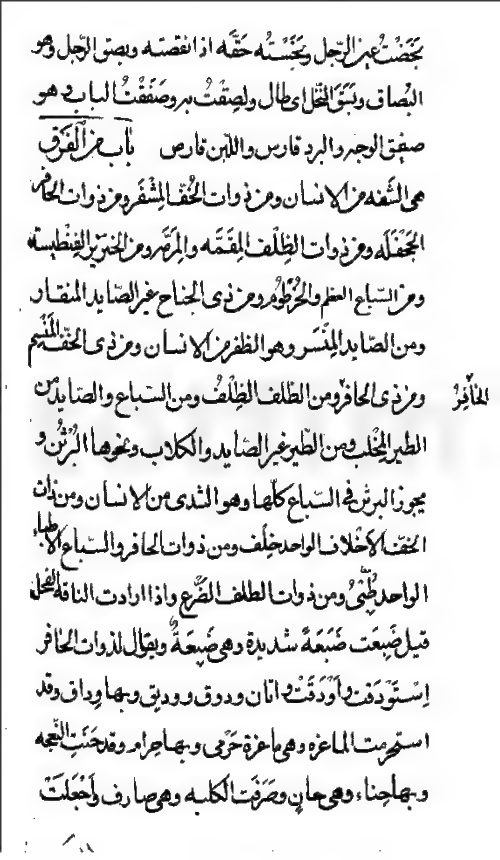 بخصت عين الرجل وبخسته حقه اذا نقصته وبصق الرجل وهو
البصاق وبسق النخل اى طال ولصقت به وصفقت الباب وهو
صفيق الوجه والبرد قارس واللبن قارص باب من الفرق
هى الشفه من الانسان ومن ذوات الخف المشفر ومن ذوات الحافر
الجحفله ومن ذوات الظلف المقمه والمرمه ومن الخنزير الفنطيسة
ومن السباع الخطم والخرطوم ومن ذى الجناح غير الصايد المنقار
ومن الصايد المنسر وهو الظفر من الانسان ومن ذى الخف المنسم
ومن ذى الحافر ومن الظلف الظلف ومن السباع والصايد من
الحافر
الطير المخلب ومن الطير غير الصايد والكلاب ونحوها البرثن و
يجوز البرثن فى السباع كلها وهو الثدى من الانسان ومن ذات
الخف الاخلاف الواحد خلف ومن ذوات الحافر والسباع الاطباء
الواحد طبى ومن ذوات الظلف الضرع واذا ارادت الناقة الفحل
قيل ضبعت ضبعة شديدة وهى ضبعة ويقال لذوات الحافر
استودقت واودقت واتان ودوق ووديق وبها وداق وقد
استحرمت الماعزه وهى ماعزة حرمى وبها حرام وقد حنت النعجه
وبها حناء وهى حان وصرفت الكلبه وهى صارف واجعلت